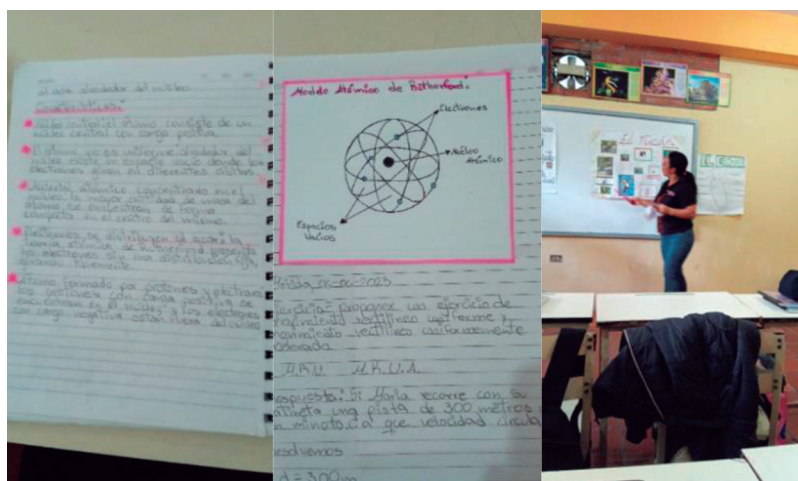 al azar alrededor del núcleo
Características:
Núcleo central: el átomo consiste de un
núcleo central con carga positiva.
El átomo no es uniforme: alrededor del
núcleo existe un espacio vacío donde los
electrones giran en diferentes órbitas
Material atómico concentrado en el
núcleo: la mayor cantidad de masa del
átomo se encuentran de forma
compacta en el centro del mismo.
Electrones se distribuyen al azar: la
teoría atómica de Rutherford presenta
los electrones sin una distribución fija
girando libremente.
Átomo formado por protones y electrones
los protones con carga positiva se
encuentran en el núcleo y los electrones
con carga negativa están fuera del núcleo
Modelo Atómico de Rutherford:
Electrones
Núcleo
Atómico
Espacios
Vacíos
2023
ejercicio= proponer un ejercicio de
movimiento rectilíneo uniforme y
movimiento rectilíneo uniformemente
M.R.U. M.R.U.A.
espuesta: Si María recorre con su
una pista de 300 metros
minuto ¿a que velocidad circula
esolvemos
d = 300m
El Tucán
EL